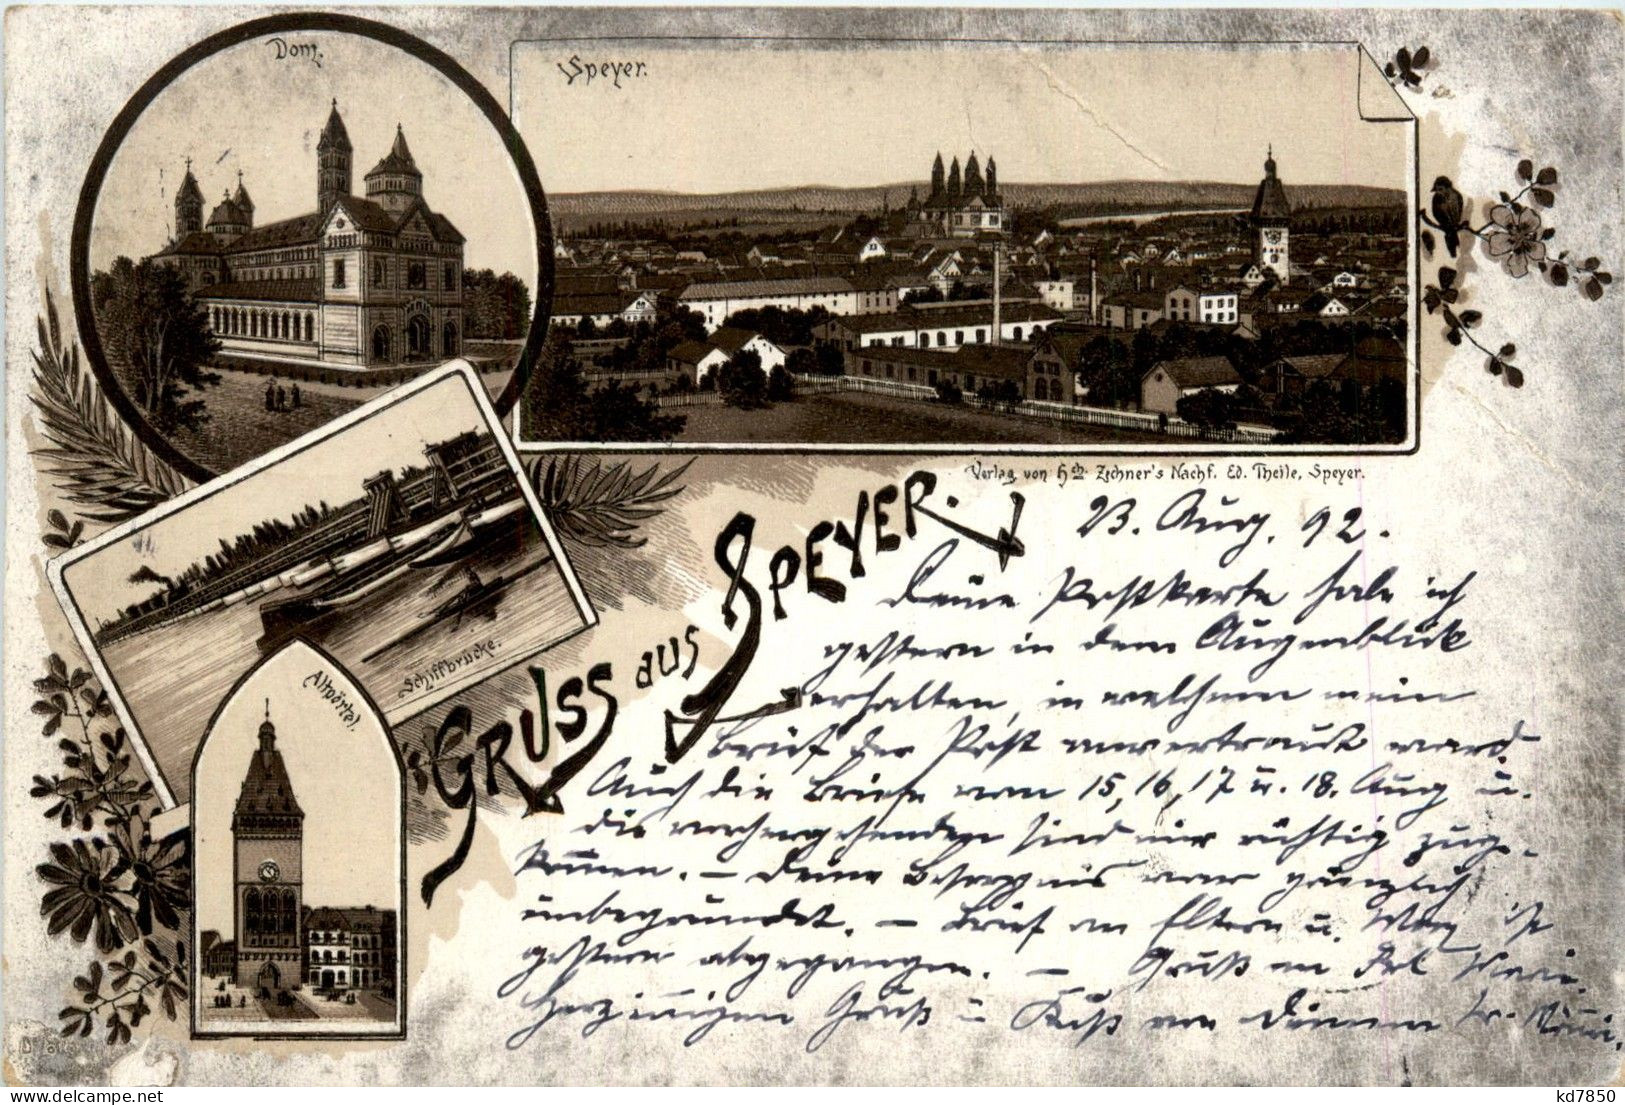 Dom.
Speyer.
Verlag von Hch. Zechner's Nachf. Ed. Theile, Speyer.
Schiffbrücke.
Altpörtel.
GRUSS aus SPEYER.
23. Aug. 92.
Deine Postkarte habe ich
gestern in dem Augenblick
erhalten, in welchem mein
Brief der Post anvertraut ward.
Auch die Briefe vom 15, 16, 17 u. 18. Aug u.
die vorhergehenden sind mir richtig zuge-
kommen. – Deine Besorgnis war gänzlich
unbegründet. – Brief an Eltern u. ist
gestern abgegangen. – Gruß an Frl Marie.
Herzinnigen Gruß u Kuß von Deinem
kd7850